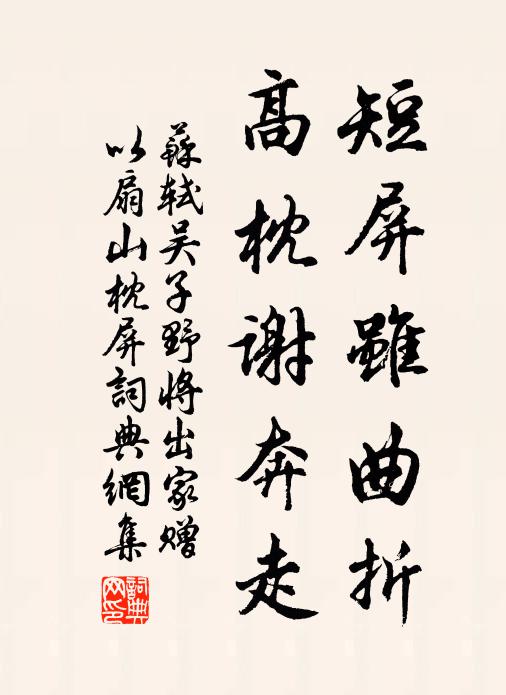 短屏雖曲折
高枕謝奔走
蘇軾吴子野將出家贈
以扇山枕屏詞典網集
詞典網印